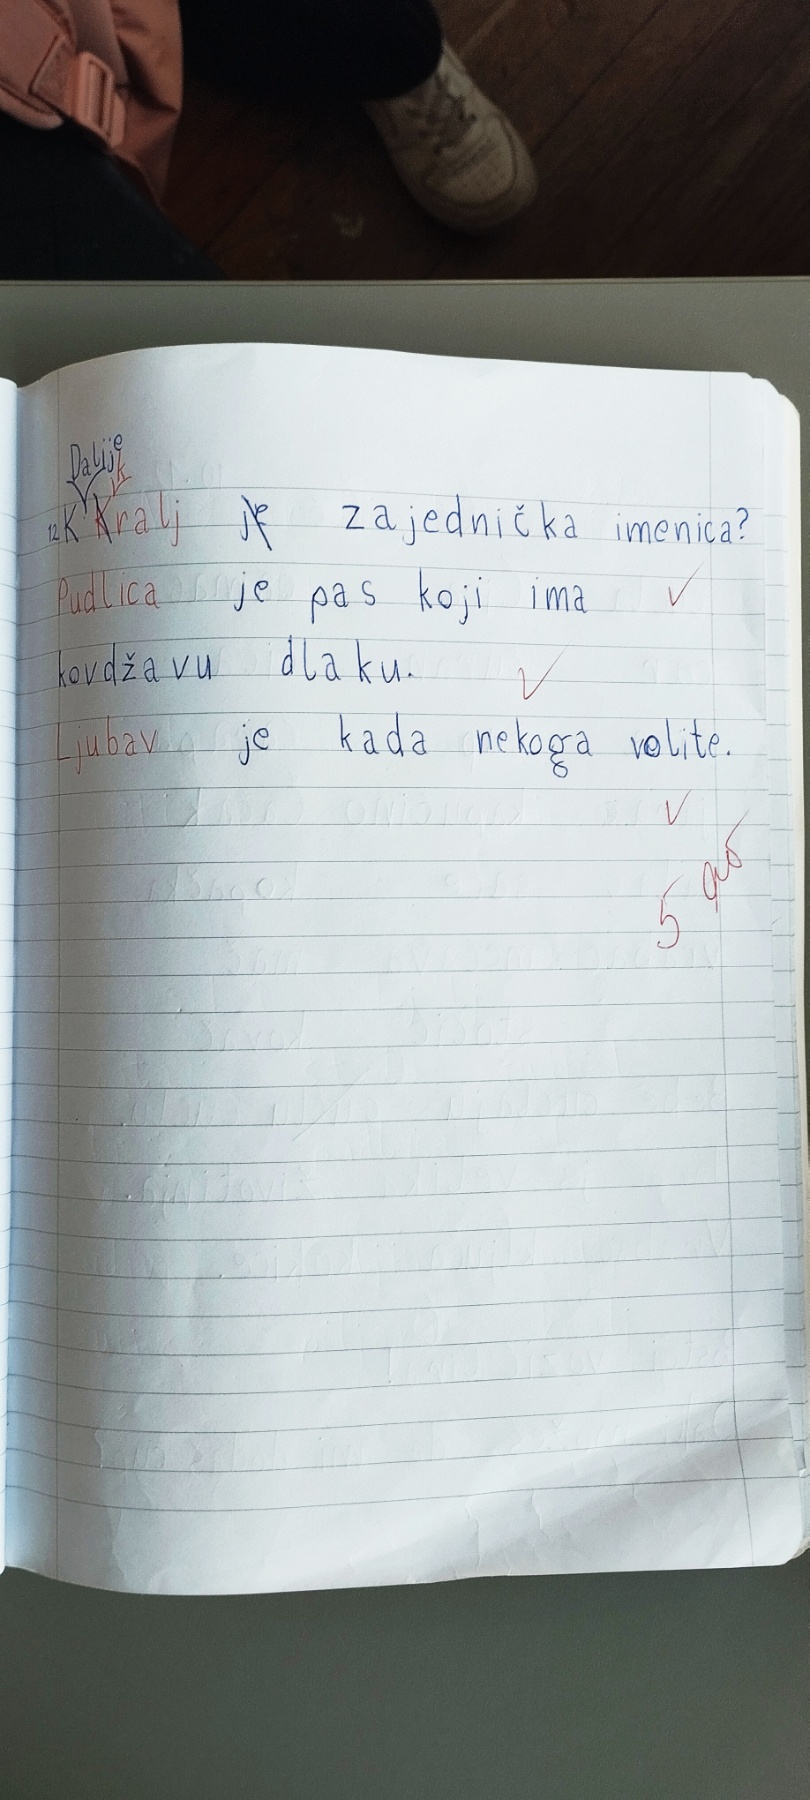 Dalije
k
12. K Kralj je zajednička imenica?
Pudlica je pas koji ima
kovdžavu dlaku.
Ljubav je kada nekoga volite.
5